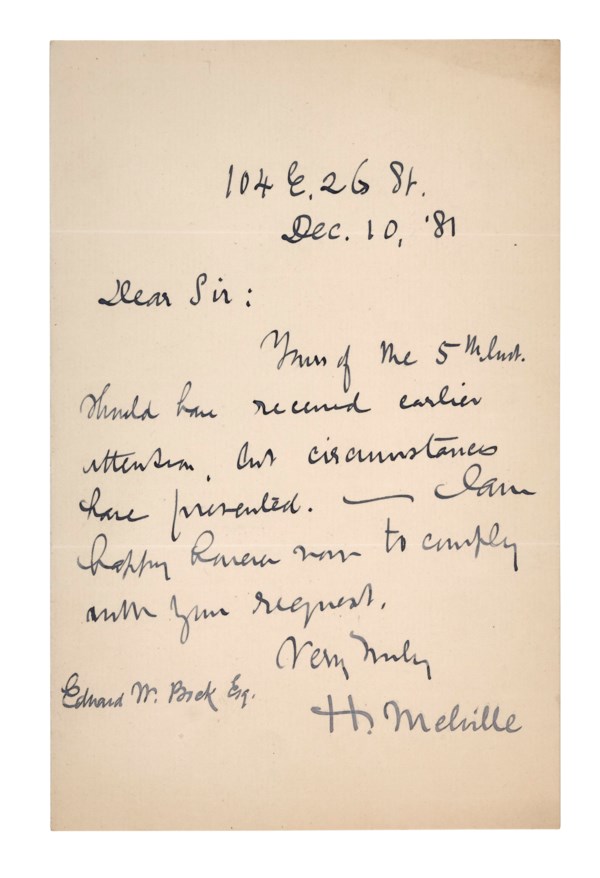 104 E. 26 St.
Dec. 10, '81
Dear Sir:
Yours of the 5th Inst.
should have received earlier
attention, but circumstances
have prevented. — I am
happy however now to comply
with your request.
Very truly
Edward W. Bok Esq.
H. Melville